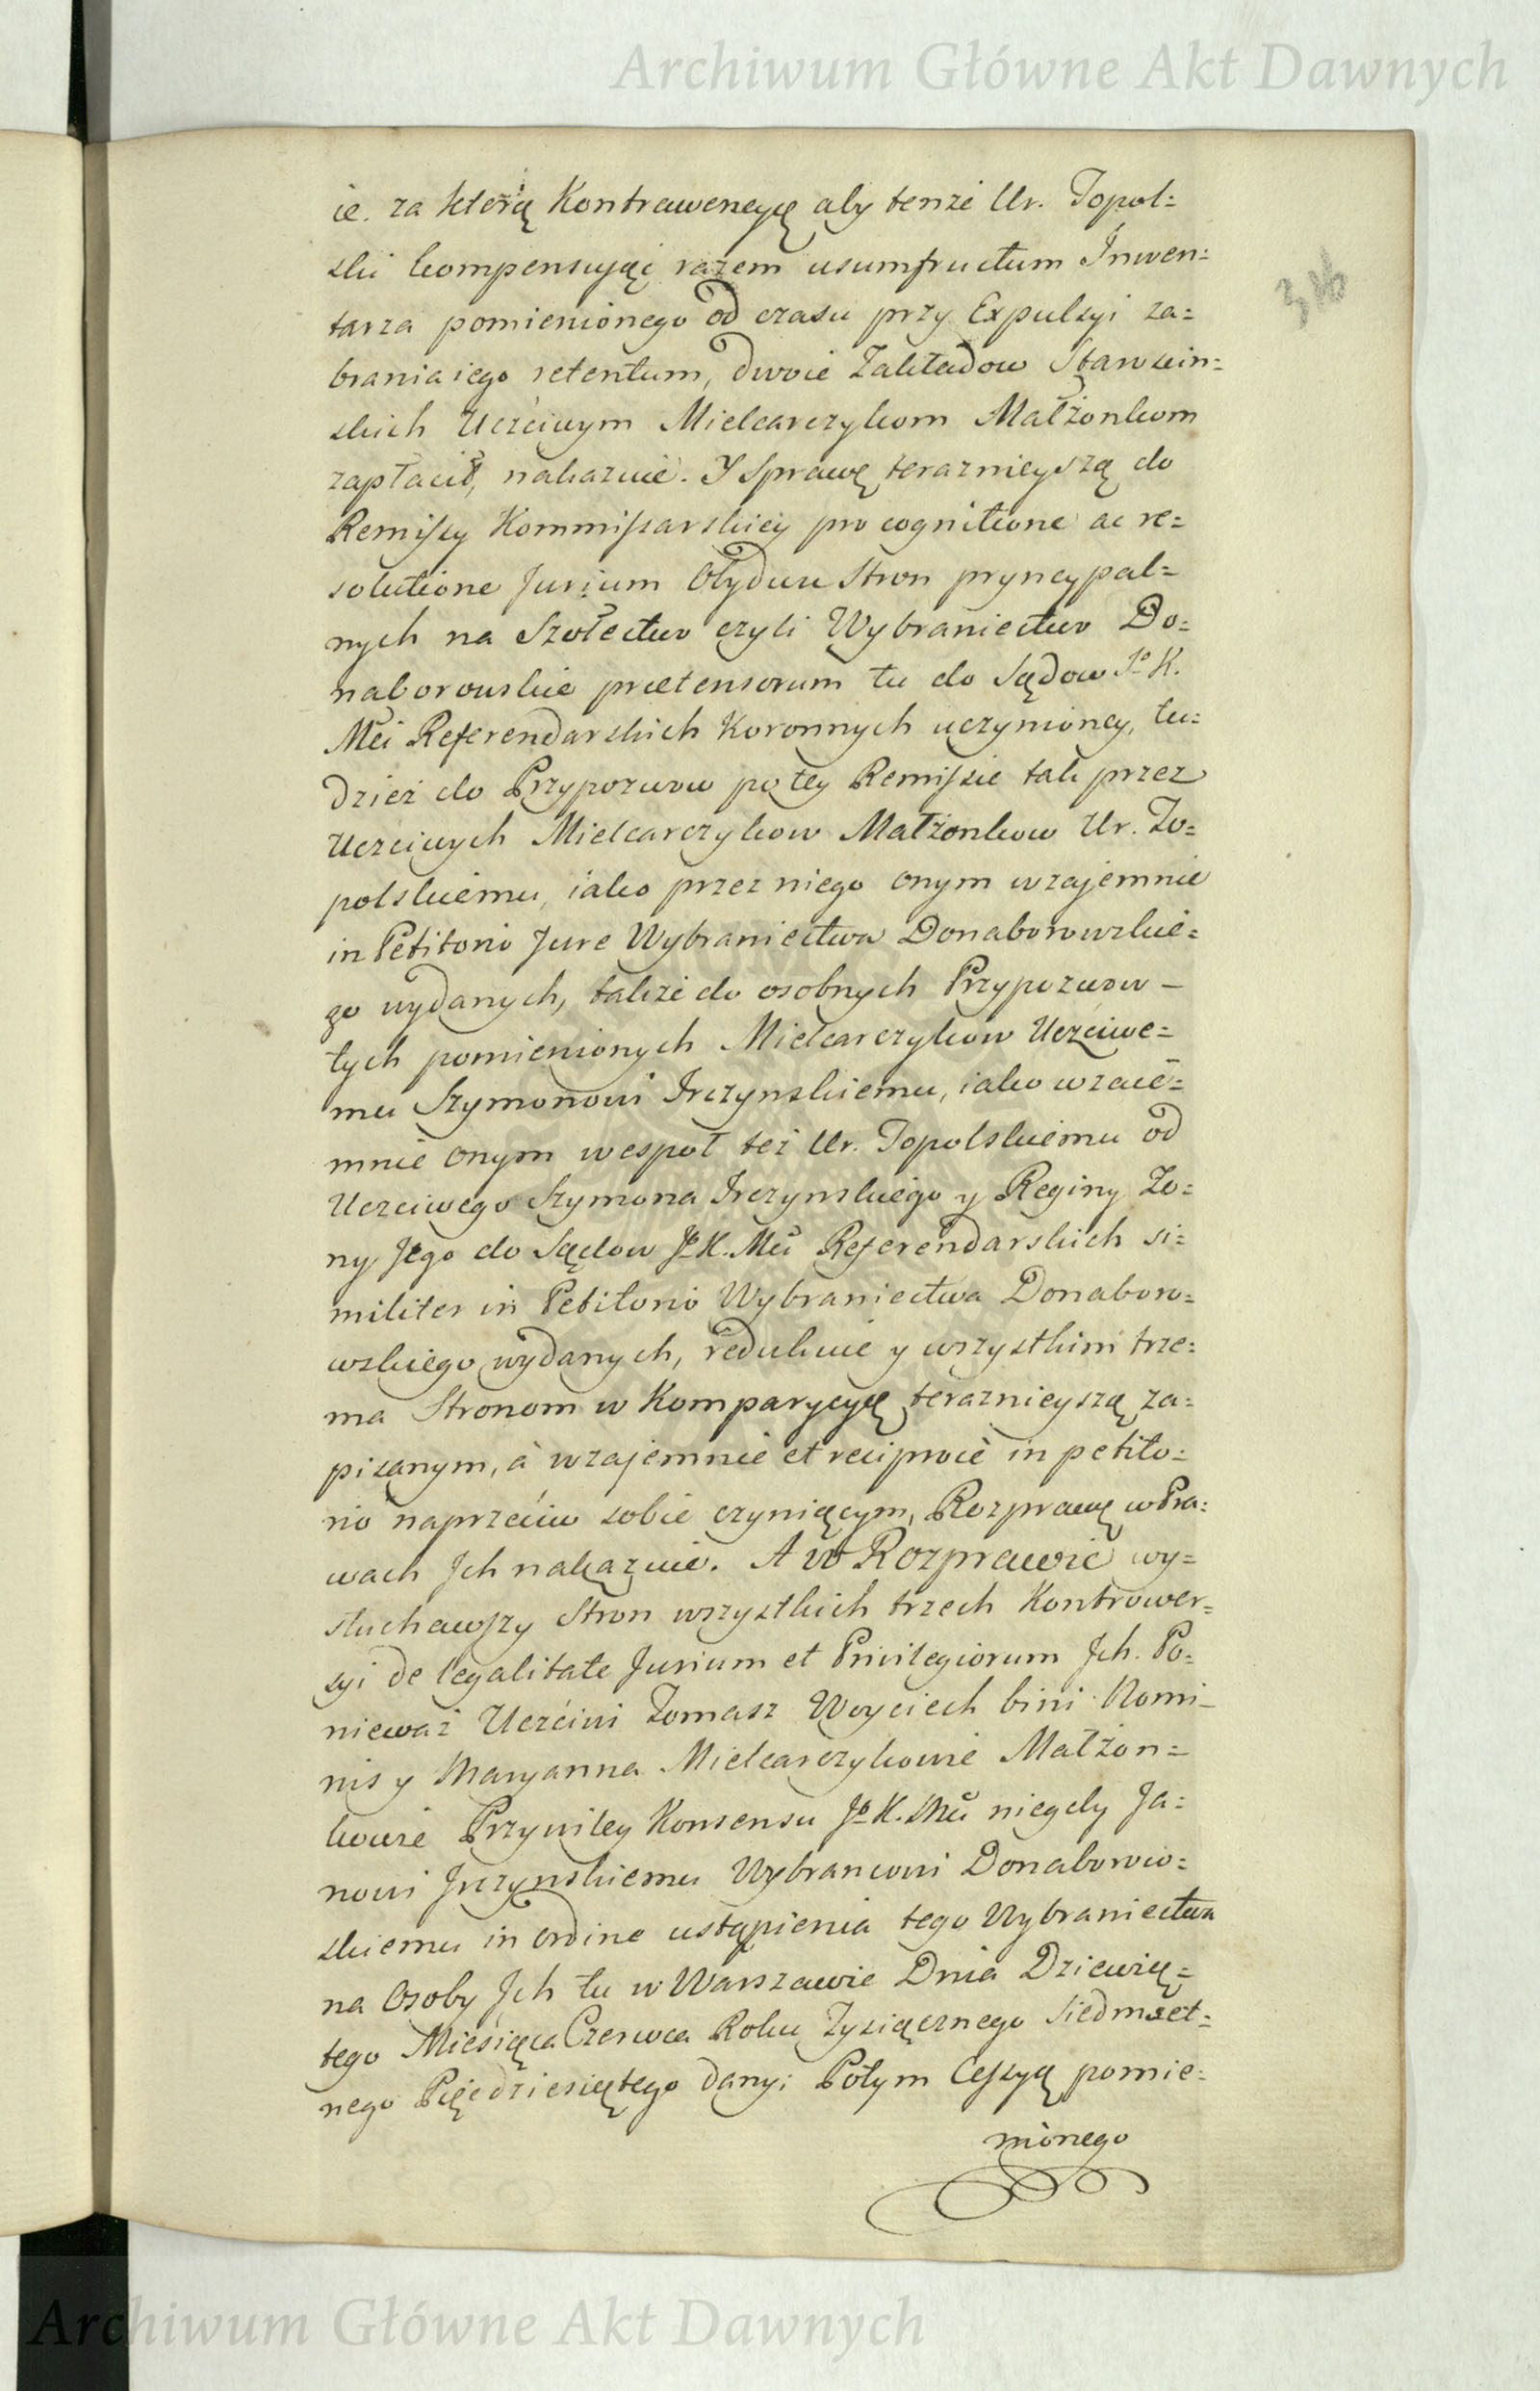 Archiwum Główne Akt Dawnych
ie. za którą Kontrawencyę aby tenże Ur. Topol=
ski kompensuiąc razem usumfructum Inwen=
tarza pomienionego od czasu przy Expulsyi za=
brania iego retentum, dwoie Zakładow Starosciń=
skich Uczciwym Mielcarczykom Małżonkom
zapłacił, nakazuie. Y Sprawę teraznieyszą do
Remissy Kommissarskiey pro cognitione ac re=
solutione Jurium Obydwu Stron pryncypal=
nych na Szołectwo czyli Wybraniectwo Do=
naborowskie praetensorum tu do Sądow Jo K.
Mci Referendarskich Koronnych uczynioney, tu=
dzież do Przypozwow po tey Remissie tak przez
Uczciwych Mielcarczykow Małżonkow Ur. To=
polskiemu, iako przez niego onym wzajemnie
in Petitorio Jure Wybraniectwa Donaborowskie=
go wydanych, także do osobnych Przypozwow –
tych pomienionych Mielcarczykow Uczciwe=
mu Szymonowi Jrczynskiemu, iako wzaie=
mnie onym wespoł też Ur. Topolskiemu od
Uczciwego Szymona Jrczynskiego y Reginy Żo=
ny Jego do Sądow Jo K. Mci Referendarskich si=
militer in Petitorio Wybraniectwa Donaboro=
wskiego wydanych, redukuie y wszystkim trze=
ma Stronom w Komparycyę teraznieyszą za=
pisanym, à wzajemnie et reciproce in petito=
rio naprzeciw sobie czyniącym, Rozprawę w Pra=
wach Jch nakazuie. A w Rozprawie wy=
słuchawszy Stron wszystkich trzech Kontrower=
syi de legalitate Jurium et Privilegiorum Jch. Po=
nieważ Uczciwi Tomasz Woyciech bini Nomi–
nis y Maryanna Mielcarczykowie Małżon=
kowie Przywiley Konsensu Jo K. Mci niegdy Ja=
nowi Jrczynskiemu Wybrancowi Donaborow=
skiemu in ordine ustąpienia tego Wybraniectwa
na Osoby Jch tu w Warszawie Dnia Dziewią=
tego Miesiąca Czerwca Roku Tysiącznego Siedmset=
nego Pięcdziesiątego dany; Potym Cessyą pomie=
nionego
Archiwum Główne Akt Dawnych